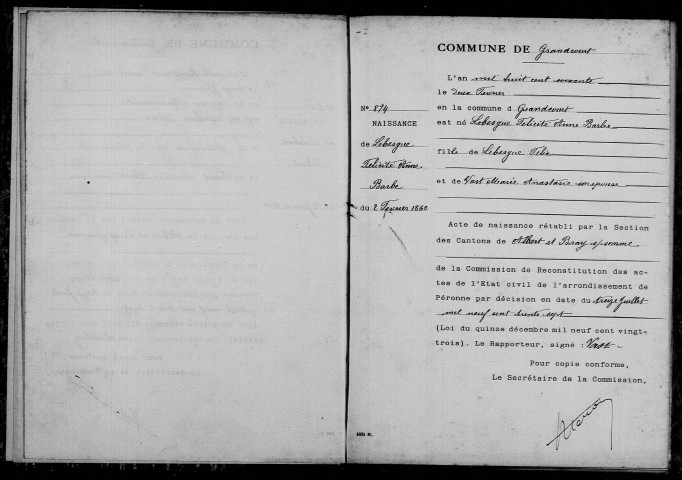 COMMUNE DE Grandcourt
L'an mil huit cent soixante
le deux Février
en la commune d Grandcourt
est né Lebesgue Félicité Anne Barbe
fille de Lebesgue Félix
et de Vast Marie Anastasie son épouse
No 874
NAISSANCE
de Lebesgue
Félicité Anne
Barbe
du 2 Février 1860
Acte de naissance rétabli par la Section
des Cantons de Albert et Bray s/somme
de la Commission de Reconstitution des ac-
tes de l'Etat civil de l'arrondissement de
Péronne par décision en date du treize Juillet
mil neuf cent trente sept
(Loi du quinze décembre mil neuf cent vingt-
trois). Le Rapporteur, signé : Vast
Pour copie conforme,
Le Secrétaire de la Commission,